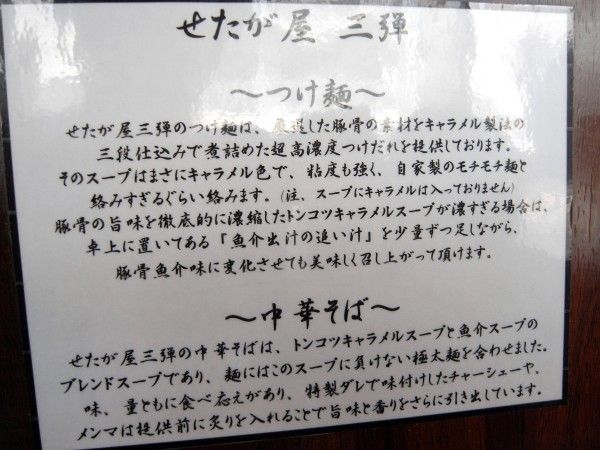 せたが屋 三弾
～つけ麺～
せたが屋三弾のつけ麺は、厳選した豚骨の素材をキャラメル製法の
三段仕込みで煮詰めた超高濃度つけだれを提供しております。
そのスープはまさにキャラメル色で、粘度も強く、自家製のモチモチ麺と
絡みすぎるぐらい絡みます。(注、スープにキャラメルは入っておりません)
豚骨の旨味を徹底的に濃縮したトンコツキャラメルスープが濃すぎる場合は、
卓上に置いてある「魚介出汁の追い汁」を少量ずつ足しながら、
豚骨魚介味に変化させても美味しく召し上がって頂けます。
～中華そば～
せたが屋三弾の中華そばは、トンコツキャラメルスープと魚介スープの
ブレンドスープであり、麺にはこのスープに負けない極太麺を合わせました。
味、量ともに食べ応えがあり、特製ダレで味付けしたチャーシューや、
メンマは提供前に炙りを入れることで旨味と香りをさらに引き出しています。